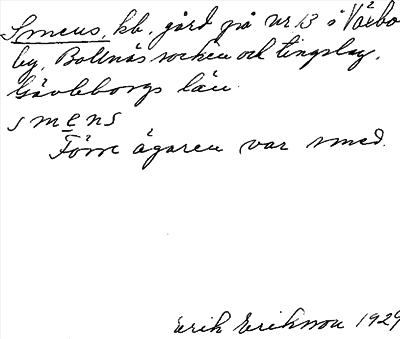 Smens, kb. gård på nr 13 i Växbo
by, Bollnäs socken och tingslag,
Gävleborgs län.
smens
Förre ägaren var smed.
Erik Eriksson 1929